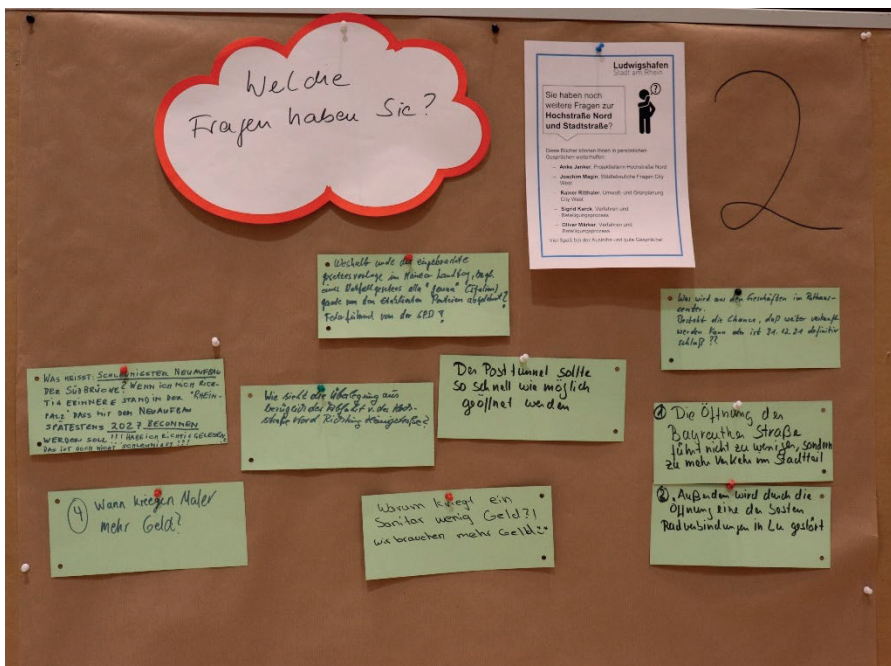 Welche
Fragen haben Sie?
Ludwigshafen
Stadt am Rhein
Sie haben noch
weitere Fragen zur
Hochstraße Nord
und Stadtstraße?
?
Diese Bücher können Ihnen in persönlichen
Gesprächen weiterhelfen:
– Anke Janker, Projektleiterin Hochstraße Nord
– Joachim Magin, Städtebauliche Fragen City
West
– Rainer Ritthaler, Umwelt- und Grünplanung
City West
– Sigrid Karck, Verfahren und
Beteiligungsprozess
– Oliver Märker, Verfahren und
Beteiligungsprozess
Viel Spaß bei der Ausleihe und gute Gespräche!
2
Weshalb wurde die eingebrachte
Gesetzesvorlage im Mainzer Landtag, bzgl.
eines Notfallgesetzes alla "Genua" (Italien)
gerade von den etablierten Parteien abgelehnt?
Federführend von der SPD!
Was wird aus den Geschäften im Rathaus-
center.
Besteht die Chance, daß weiter verkauft
werden kann oder ist 31.12.21 definitiv
schluß ??
WAS HEISST: SCHLEUNIGSTER NEUAUFBAU
DER SÜDBRÜCKE? WENN ICH MICH RICH-
TIG ERINNERE STAND IN DER "RHEIN-
PFALZ" DASS MIT DEM NEUAUFBAU
SPÄTESTENS 2027 BEGONNEN
WERDEN SOLL !!! HABE ICH RICHTIG GELESEN,
DAS IST DOCH NICHT SCHLEUNIGST ???
Wie sieht die Überlegung aus
bezüglich der Abfahrt v. der Hoch-
straße Nord Richtung Königstraße?
Der Posttunnel sollte
so schnell wie möglich
geöffnet werden
① Die Öffnung der
Bayreuther Straße
führt nicht zu weniger, sondern
zu mehr Verkehr im Stadtteil
②. Außerdem wird durch die
Öffnung eine der besten
Radverbindungen in Lu gestört
④ Wann kriegen Maler
mehr Geld?
Warum kriegt ein
Sanitär wenig Geld?!
wir brauchen mehr Geld